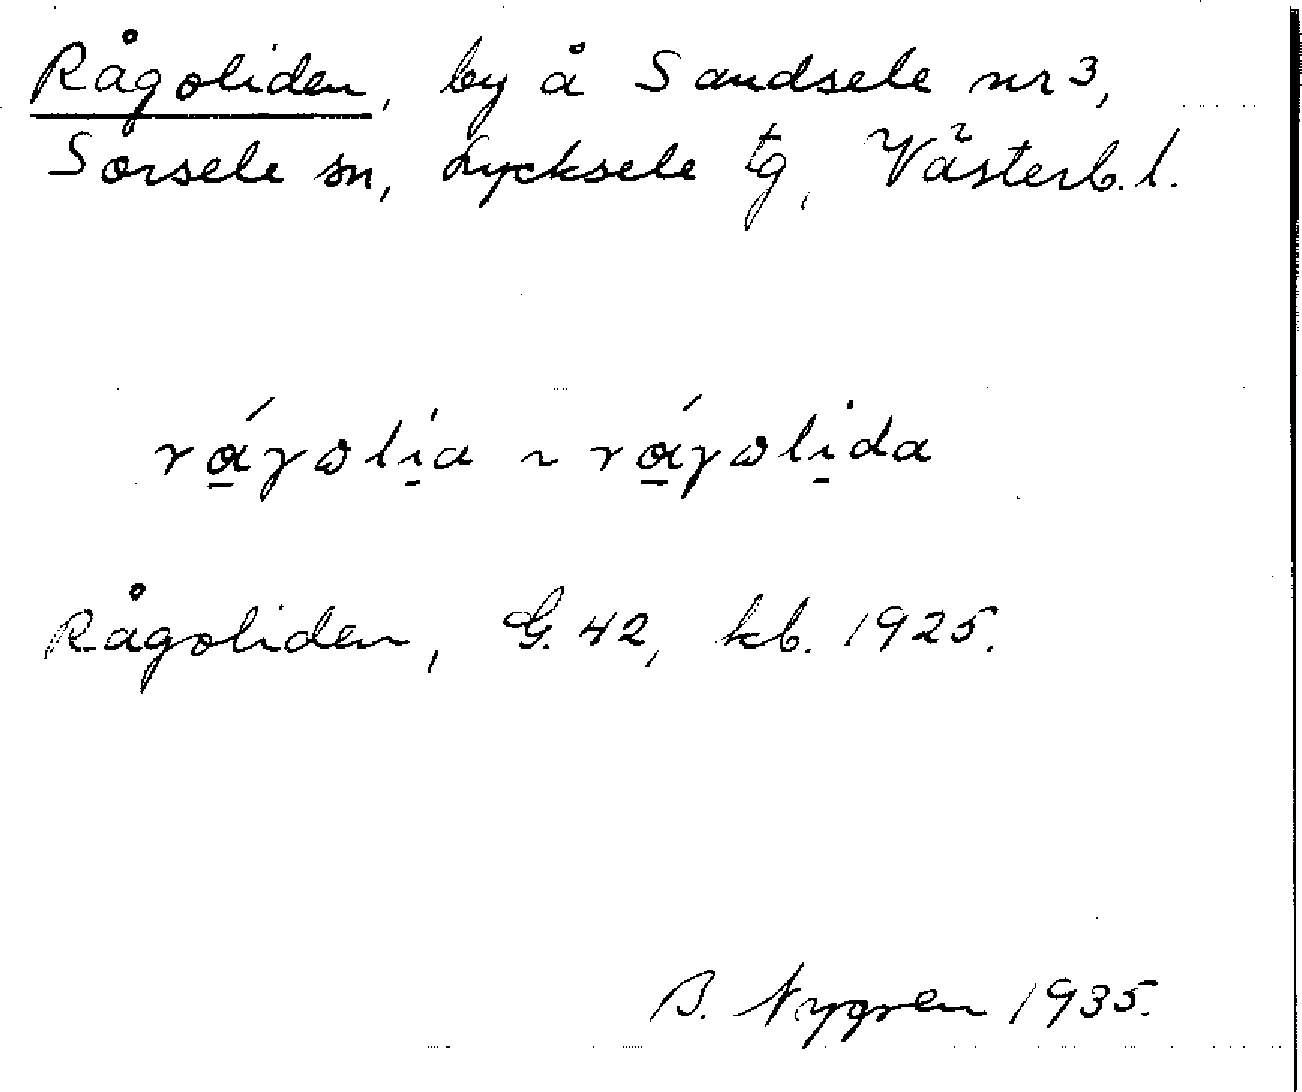 Rågoliden, by å Sandsele nr 3,
Sorsele sn, Lycksele tg, Västerb. l.
rά̱ɣωli̱a ~ rά̱ɣωli̱da
Rågoliden, G. 42, kb. 1925.
B. Nygren 1935.